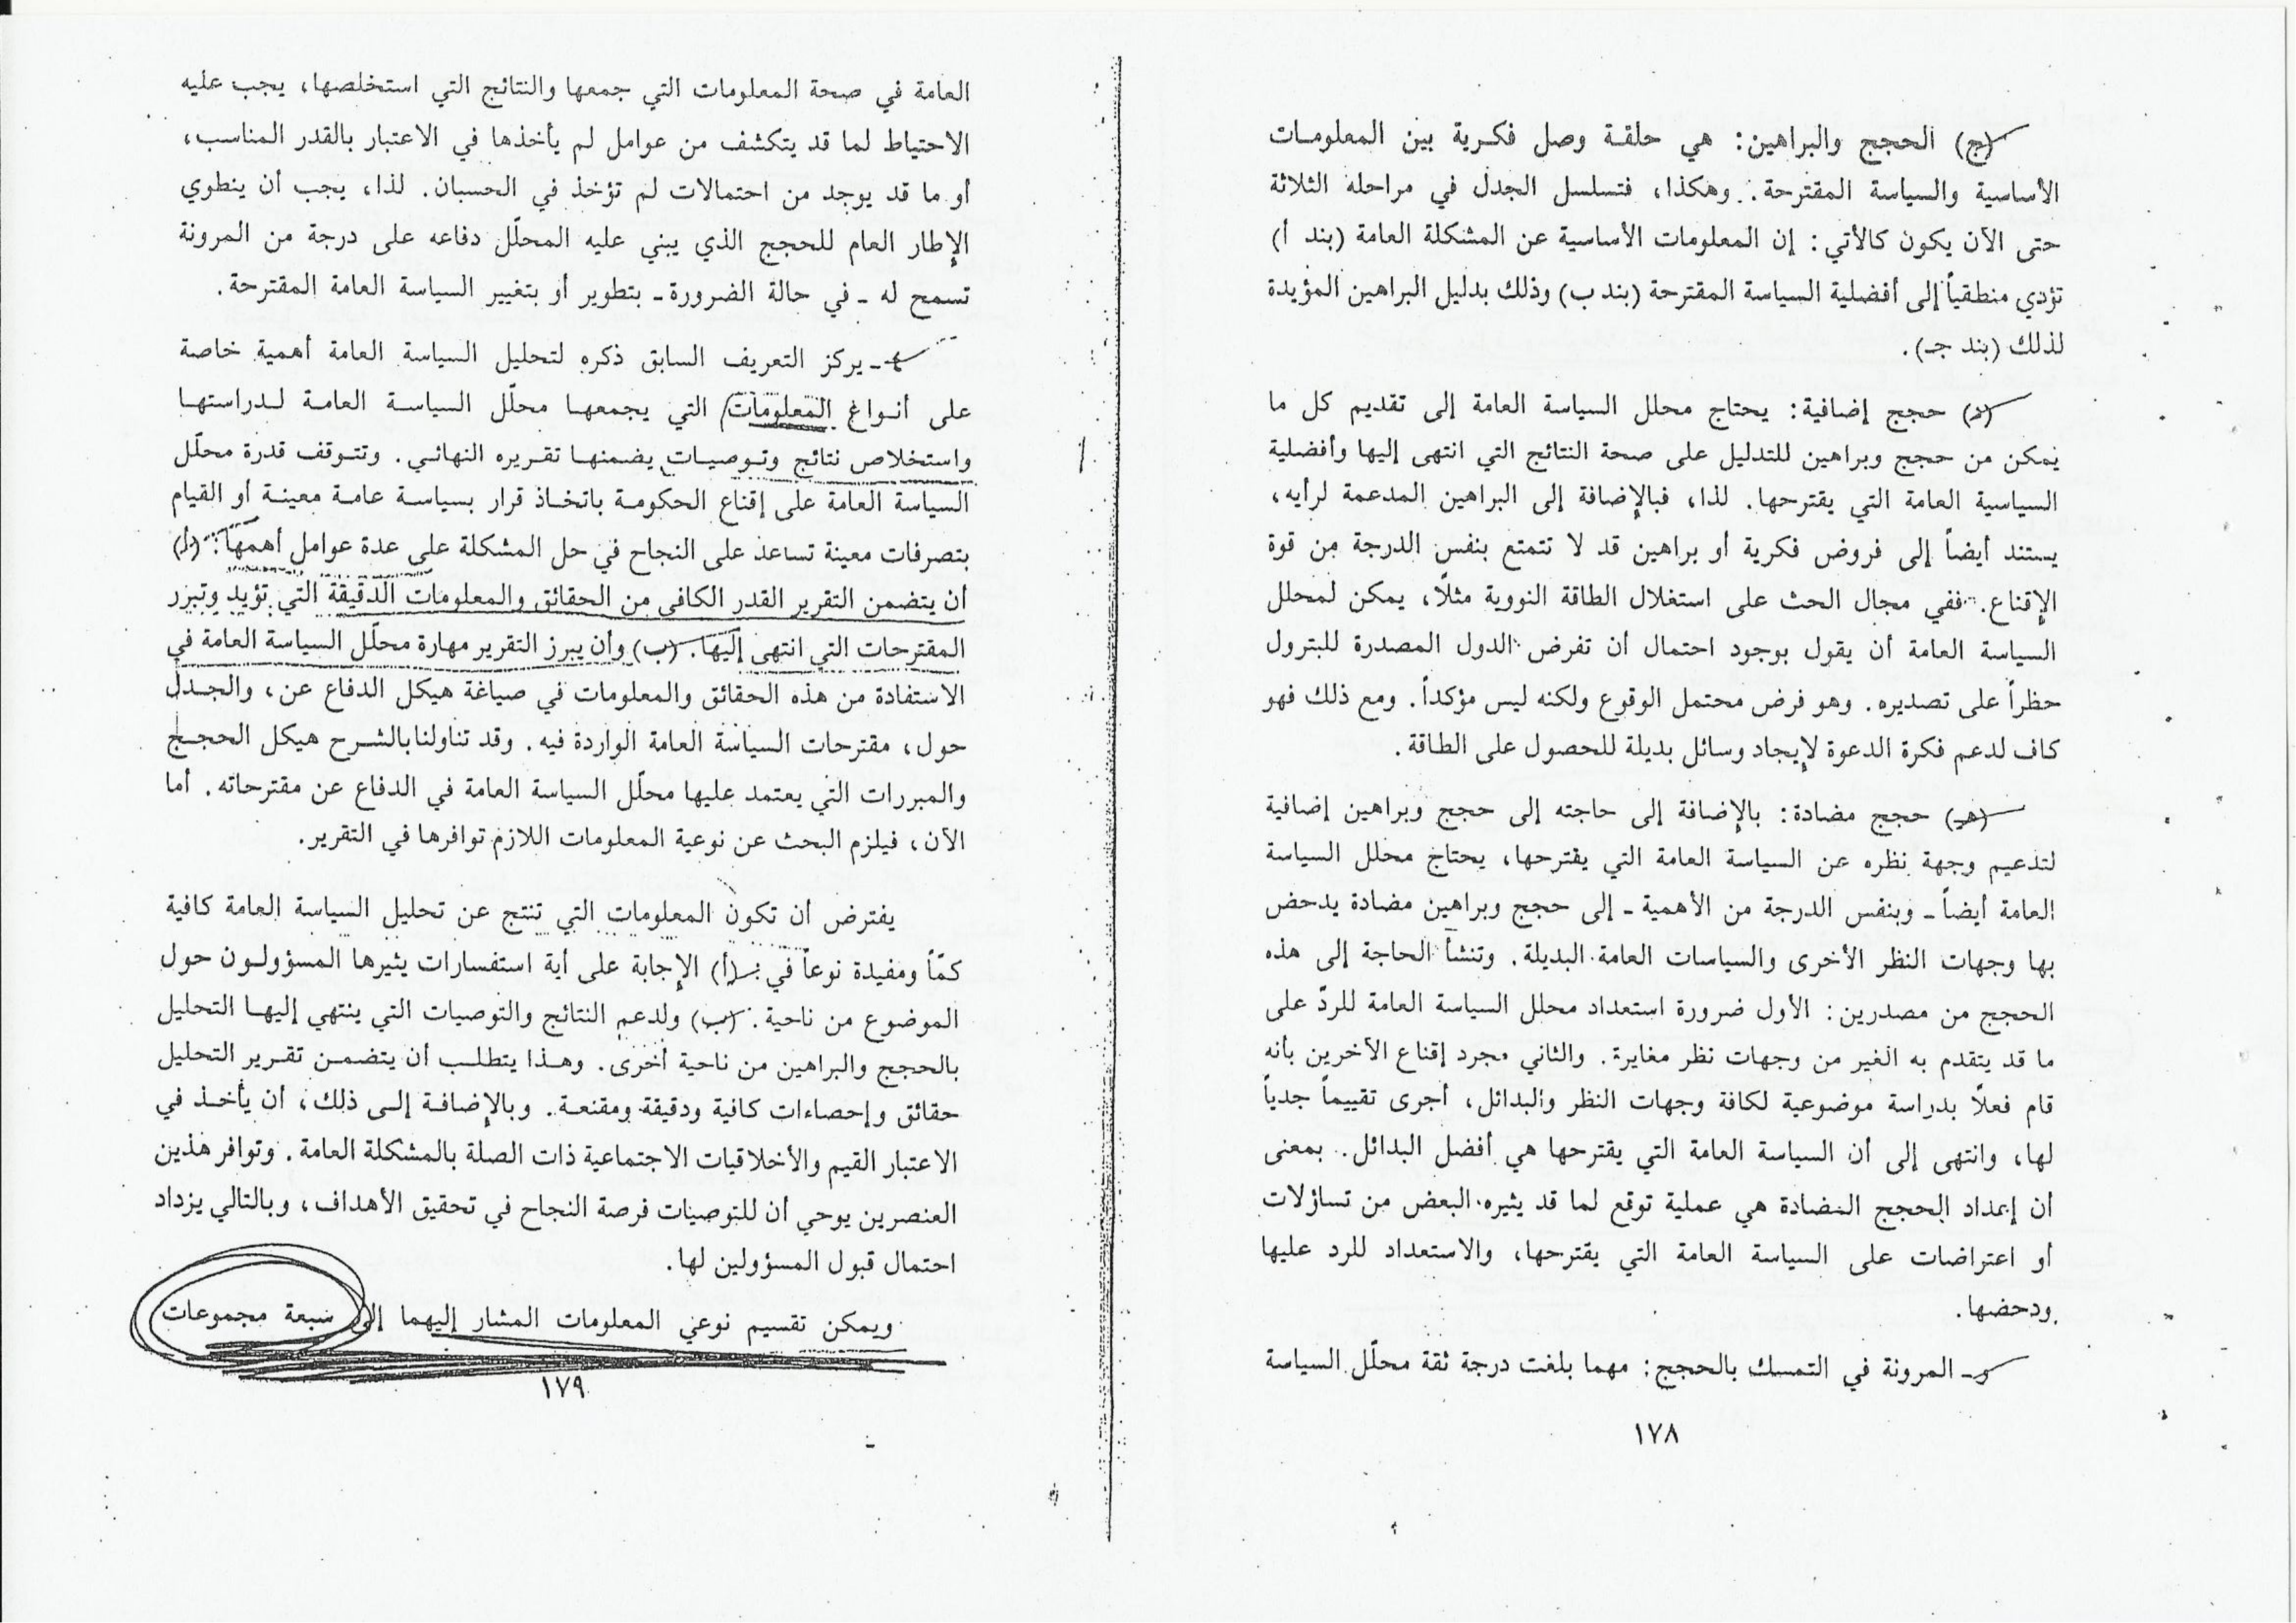 (ج) الحجج والبراهين: هي حلقة وصل فكرية بين المعلومات
الأساسية والسياسة المقترحة. وهكذا، فتسلسل الجدل في مراحله الثلاثة
حتى الآن يكون كالأتي: إن المعلومات الأساسية عن المشكلة العامة (بند أ)
تؤدي منطقياً إلى أفضلية السياسة المقترحة (بند ب) وذلك بدليل البراهين المؤيدة
لذلك (بند جـ).
(د) حجج إضافية: يحتاج محلل السياسة العامة إلى تقديم كل ما
يمكن من حجج وبراهين للتدليل على صحة النتائج التي انتهى إليها وأفضلية
السياسية العامة التي يقترحها. لذا، فبالإضافة إلى البراهين المدعمة لرأيه،
يستند أيضاً إلى فروض فكرية أو براهين قد لا تتمتع بنفس الدرجة من قوة
الإقناع. ففي مجال الحث على استغلال الطاقة النووية مثلاً، يمكن لمحلل
السياسة العامة أن يقول بوجود احتمال أن تفرض الدول المصدرة للبترول
حظراً على تصديره. وهو فرض محتمل الوقوع ولكنه ليس مؤكداً. ومع ذلك فهو
كاف لدعم فكرة الدعوة لإيجاد وسائل بديلة للحصول على الطاقة.
(هـ) حجج مضادة: بالإضافة إلى حاجته إلى حجج وبراهين إضافية
لتدعيم وجهة نظره عن السياسة العامة التي يقترحها، يحتاج محلل السياسة
العامة أيضاً ـ وبنفس الدرجة من الأهمية ـ إلى حجج وبراهين مضادة يدحض
بها وجهات النظر الأخرى والسياسات العامة البديلة. وتنشأ الحاجة إلى هذه
الحجج من مصدرين: الأول ضرورة استعداد محلل السياسة العامة للردّ على
ما قد يتقدم به الغير من وجهات نظر مغايرة. والثاني مجرد إقناع الآخرين بأنه
قام فعلاً بدراسة موضوعية لكافة وجهات النظر والبدائل، أجرى تقييماً جدياً
لها، وانتهى إلى أن السياسة العامة التي يقترحها هي أفضل البدائل. بمعنى
أن إعداد الحجج المضادة هي عملية توقع لما قد يثيره البعض من تساؤلات
أو اعتراضات على السياسة العامة التي يقترحها، والاستعداد للرد عليها
ودحضها.
و ـ المرونة في التمسك بالحجج: مهما بلغت درجة ثقة محلّل السياسة
١٧٨
العامة في صحة المعلومات التي جمعها والنتائج التي استخلصها، يجب عليه
الاحتياط لما قد يتكشف من عوامل لم يأخذها في الاعتبار بالقدر المناسب،
أو ما قد يوجد من احتمالات لم تؤخذ في الحسبان. لذا، يجب أن ينطوي
الإطار العام للحجج الذي يبني عليه المحلّل دفاعه على درجة من المرونة
تسمح له ـ في حالة الضرورة ـ بتطوير أو بتغيير السياسة العامة المقترحة.
ـ يركز التعريف السابق ذكره لتحليل السياسة العامة أهمية خاصة
على أنواع المعلومات التي يجمعها محلّل السياسة العامة لدراستها
واستخلاص نتائج وتوصيات يضمنها تقريره النهائي. وتتوقف قدرة محلّل
السياسة العامة على إقناع الحكومة باتخاذ قرار بسياسة عامة معينة أو القيام
بتصرفات معينة تساعد على النجاح في حل المشكلة على عدة عوامل أهمها: (أ)
أن يتضمن التقرير القدر الكافي من الحقائق والمعلومات الدقيقة التي تؤيد وتبرر
المقترحات التي انتهى إليها. (ب) وأن يبرز التقرير مهارة محلّل السياسة العامة في
الاستفادة من هذه الحقائق والمعلومات في صياغة هيكل الدفاع عن، والجدل
حول، مقترحات السياسة العامة الواردة فيه. وقد تناولنا بالشرح هيكل الحجج
والمبررات التي يعتمد عليها محلّل السياسة العامة في الدفاع عن مقترحاته. أما
الآن، فيلزم البحث عن نوعية المعلومات اللازم توافرها في التقرير.
يفترض أن تكون المعلومات التي تنتج عن تحليل السياسة العامة كافية
كمّاً ومفيدة نوعاً في (أ) الإجابة على أية استفسارات يثيرها المسؤولون حول
الموضوع من ناحية. (ب) ولدعم النتائج والتوصيات التي ينتهي إليها التحليل
بالحجج والبراهين من ناحية أخرى. وهذا يتطلب أن يتضمن تقرير التحليل
حقائق وإحصاءات كافية ودقيقة ومقنعة. وبالإضافة إلى ذلك، أن يأخذ في
الاعتبار القيم والأخلاقيات الاجتماعية ذات الصلة بالمشكلة العامة. وتوافر هذين
العنصرين يوحي أن للتوصيات فرصة النجاح في تحقيق الأهداف، وبالتالي يزداد
احتمال قبول المسؤولين لها.
ويمكن تقسيم نوعي المعلومات المشار إليهما إلى سبعة مجموعات
١٧٩